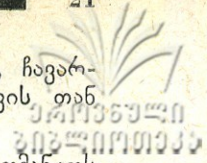 21
ჩავარ-
ვის თან
ეროვნული
ბიბლიოთეკა